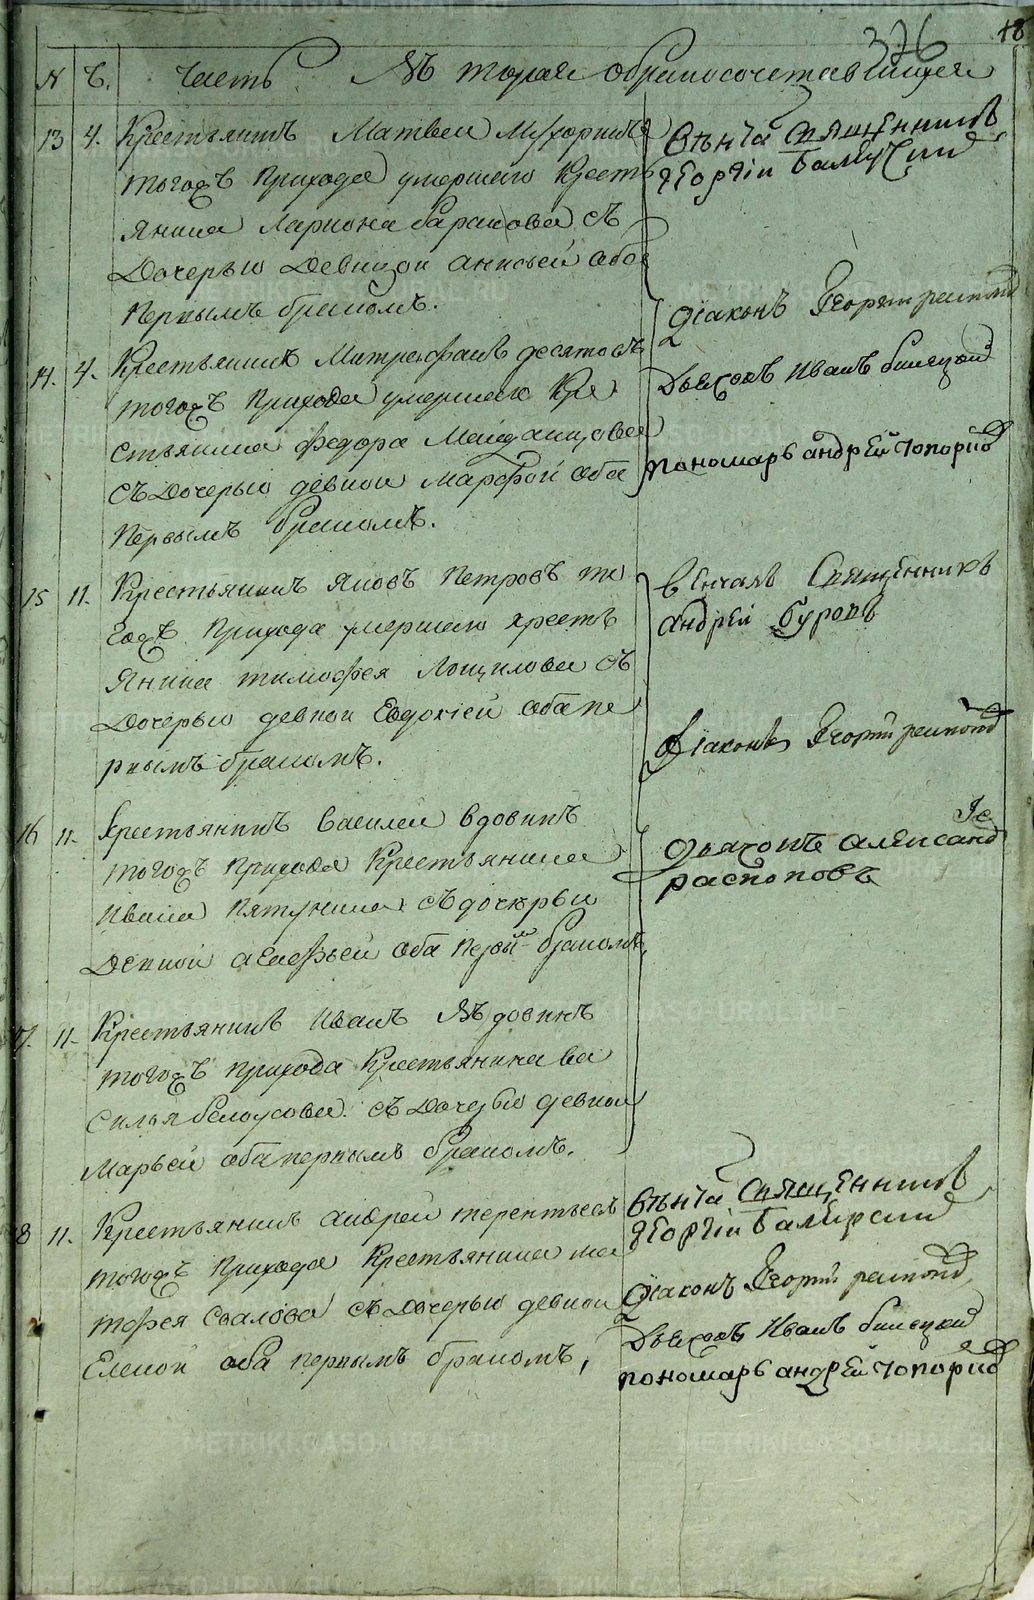 376 18
N Ч. Часть Вторая обракосочетавшихся
13 4. Крестьянинъ Матвей
тогожъ прихода умершаго Кресть
янина Лариона баранова съ
Дочерью Девицей анисьей оба
первымъ бракомъ.
Венча Священникъ
Георгiй
Дiаконъ Георгiй
14. 4. Крестьянинъ Митрофанъ десятовъ
тогожъ прихода умершаго Кре
стьянина Федора
съ Дочерью девкой Марфой оба
первымъ бракомъ.
Дьячокъ Иванъ билецкой
пономарь андрей
15 11. Крестьянинъ Яковъ Петровъ то
гожъ прихода умершаго кресть
янина тимофея Лощилова съ
Дочерью девкой Евдокiей оба пе
рвымъ бракомъ.
венчалъ Священникъ
андрей буровъ
Дiаконъ Георгiй
16 11. крестьянинъ Василей вдовинъ
тогожъ прихода Крестьянина
Ивана Пятунина съ дочерью
Девкой агафьей оба первымъ бракомъ
дьячокъ александ
распоповъ
17. 11. Крестьянинъ Иванъ Вдовинъ
тогожъ прихода Крестьянина Ва
силья белоусова съ Дочерью девкой
Марьей оба первымъ бракомъ.
18 11. Крестьянинъ андрей терентьевъ
тогожъ прихода Крестьянина ма
тфея Свалова съ Дочерью девкой
Еленой оба первымъ бракомъ,
Венча Священникъ
Георгiй
Дiаконъ Георгiй
Дьячокъ Иванъ билецкой
пономарь андрей
METRIKI.GASO-URAL.RU